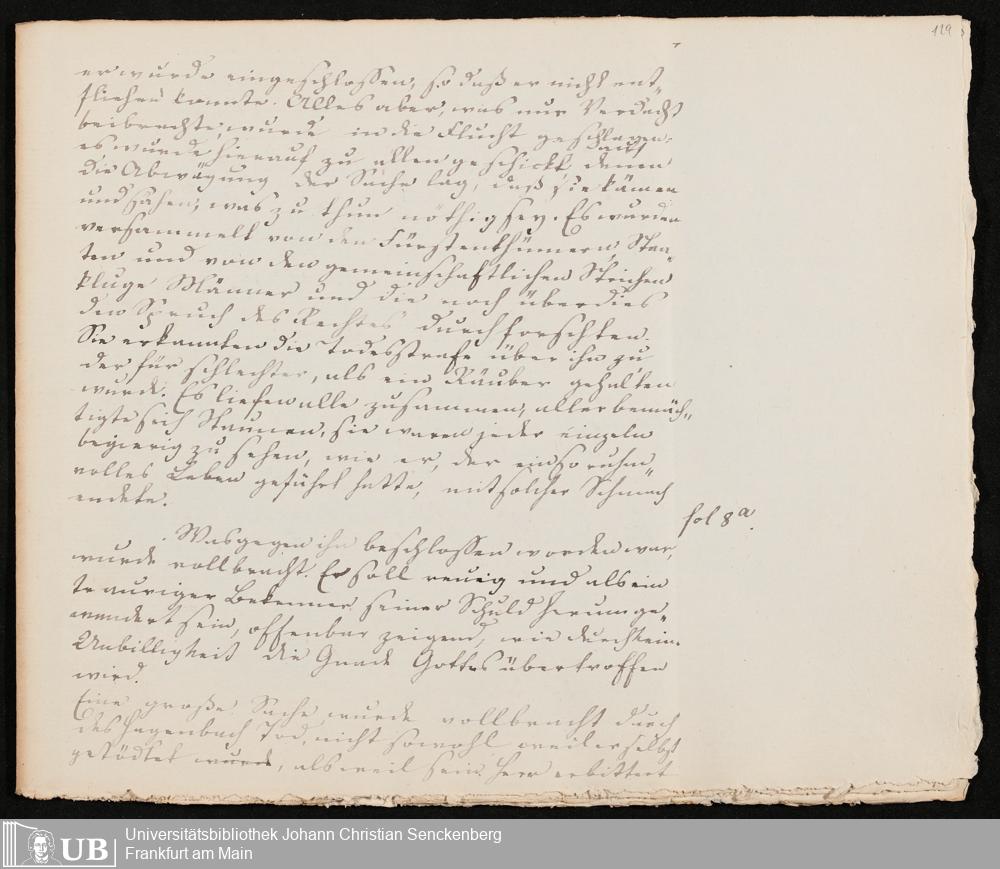 119
er wurde eingeschlossen, so daß er nicht ent„
fliehen konnte. Alles aber, was nur Verdacht
beibrachte, wurde in die Flucht geschlagen;
es wurde hierauf zu allen geschickt, auf denen
die Abwägung der Sache lag, daß sie kämen
und sähen, was zu thun nöthig sey. Es wurden
versammelt von den Fürstenthümern, Stä„
ten und von den gemeinschaftlichen Strichen
kluge Männer und die noch überdies
den Spruch des Rechtes durchforschten.
Sie erkannten die Todesstrafe über ihn zu,
der für schlechter, als ein Räuber gehalten
wurde. Es liefen alle zusammen, aller bemäch„
tigte sich Staunen, sie waren jeder einzeln
begierig zu sehen, wie er, der ein so ruhm„
volles Leben geführt hatte, mit solcher Schmach
endete.
fol 8a.
Was gegen ihn beschlossen worden war,
wurde vollbracht. Er soll reuig und als ein
trauriger Bekenner seiner Schuld herumge„
wandert sein, offenbar zeigend, wie durch keine
Unbilligkeit die Gnade Gottes übertroffen
wird.
Eine große Sache wurde vollbracht durch
des Hagenbach Tod, nicht sowohl weil er selbst
getödtet wurde, als weil sein Herr erbittert
UB
Universitätsbibliothek Johann Christian Senckenberg
Frankfurt am Main